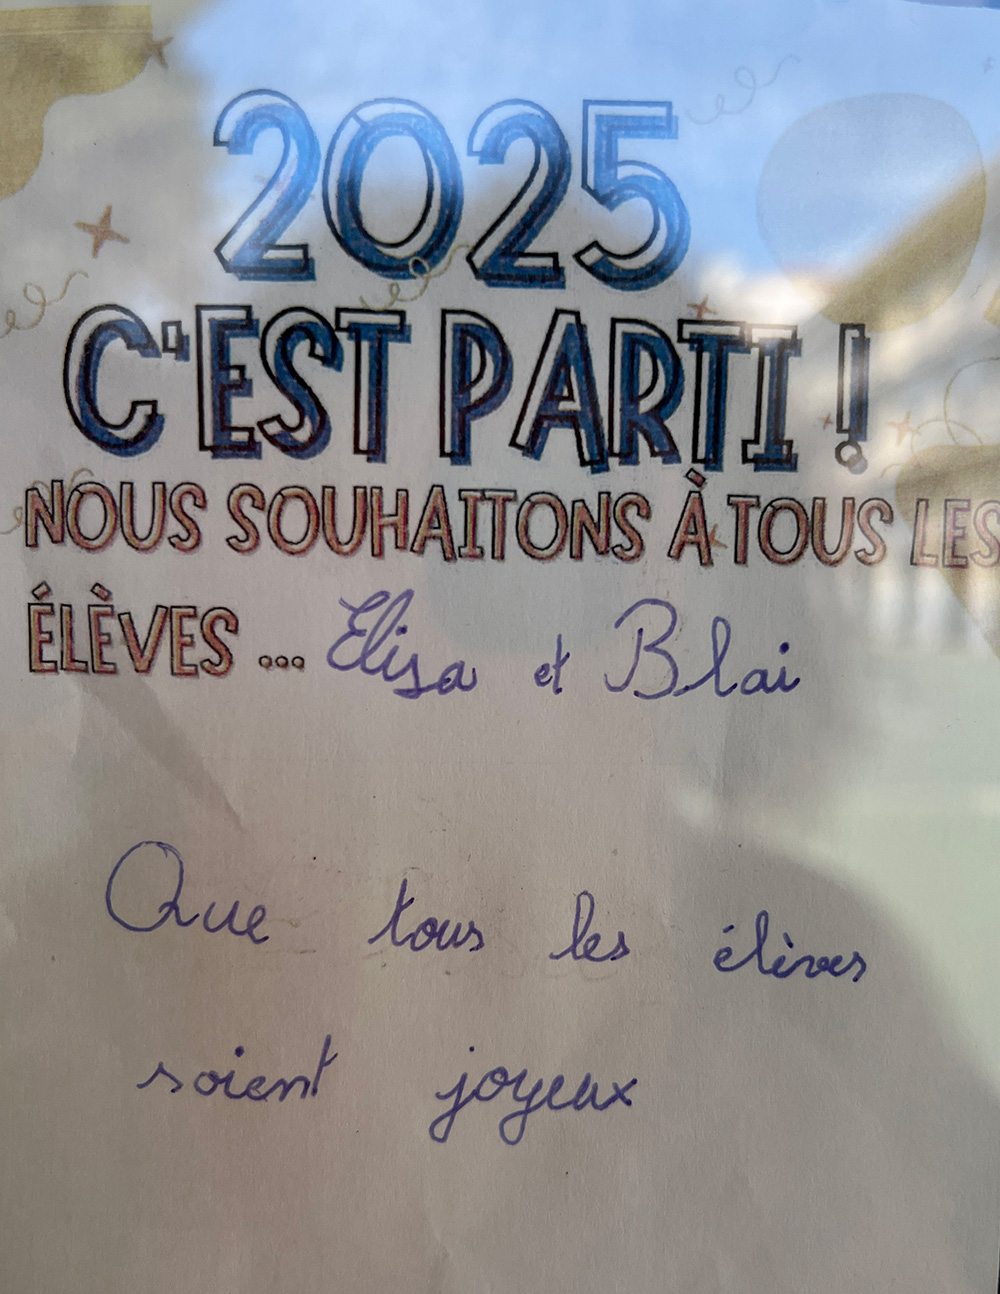 2025
C'EST PARTI !
NOUS SOUHAITONS À TOUS LES
ÉLÈVES ... Elisa et Blai
Que tous les élèves
soient joyeux